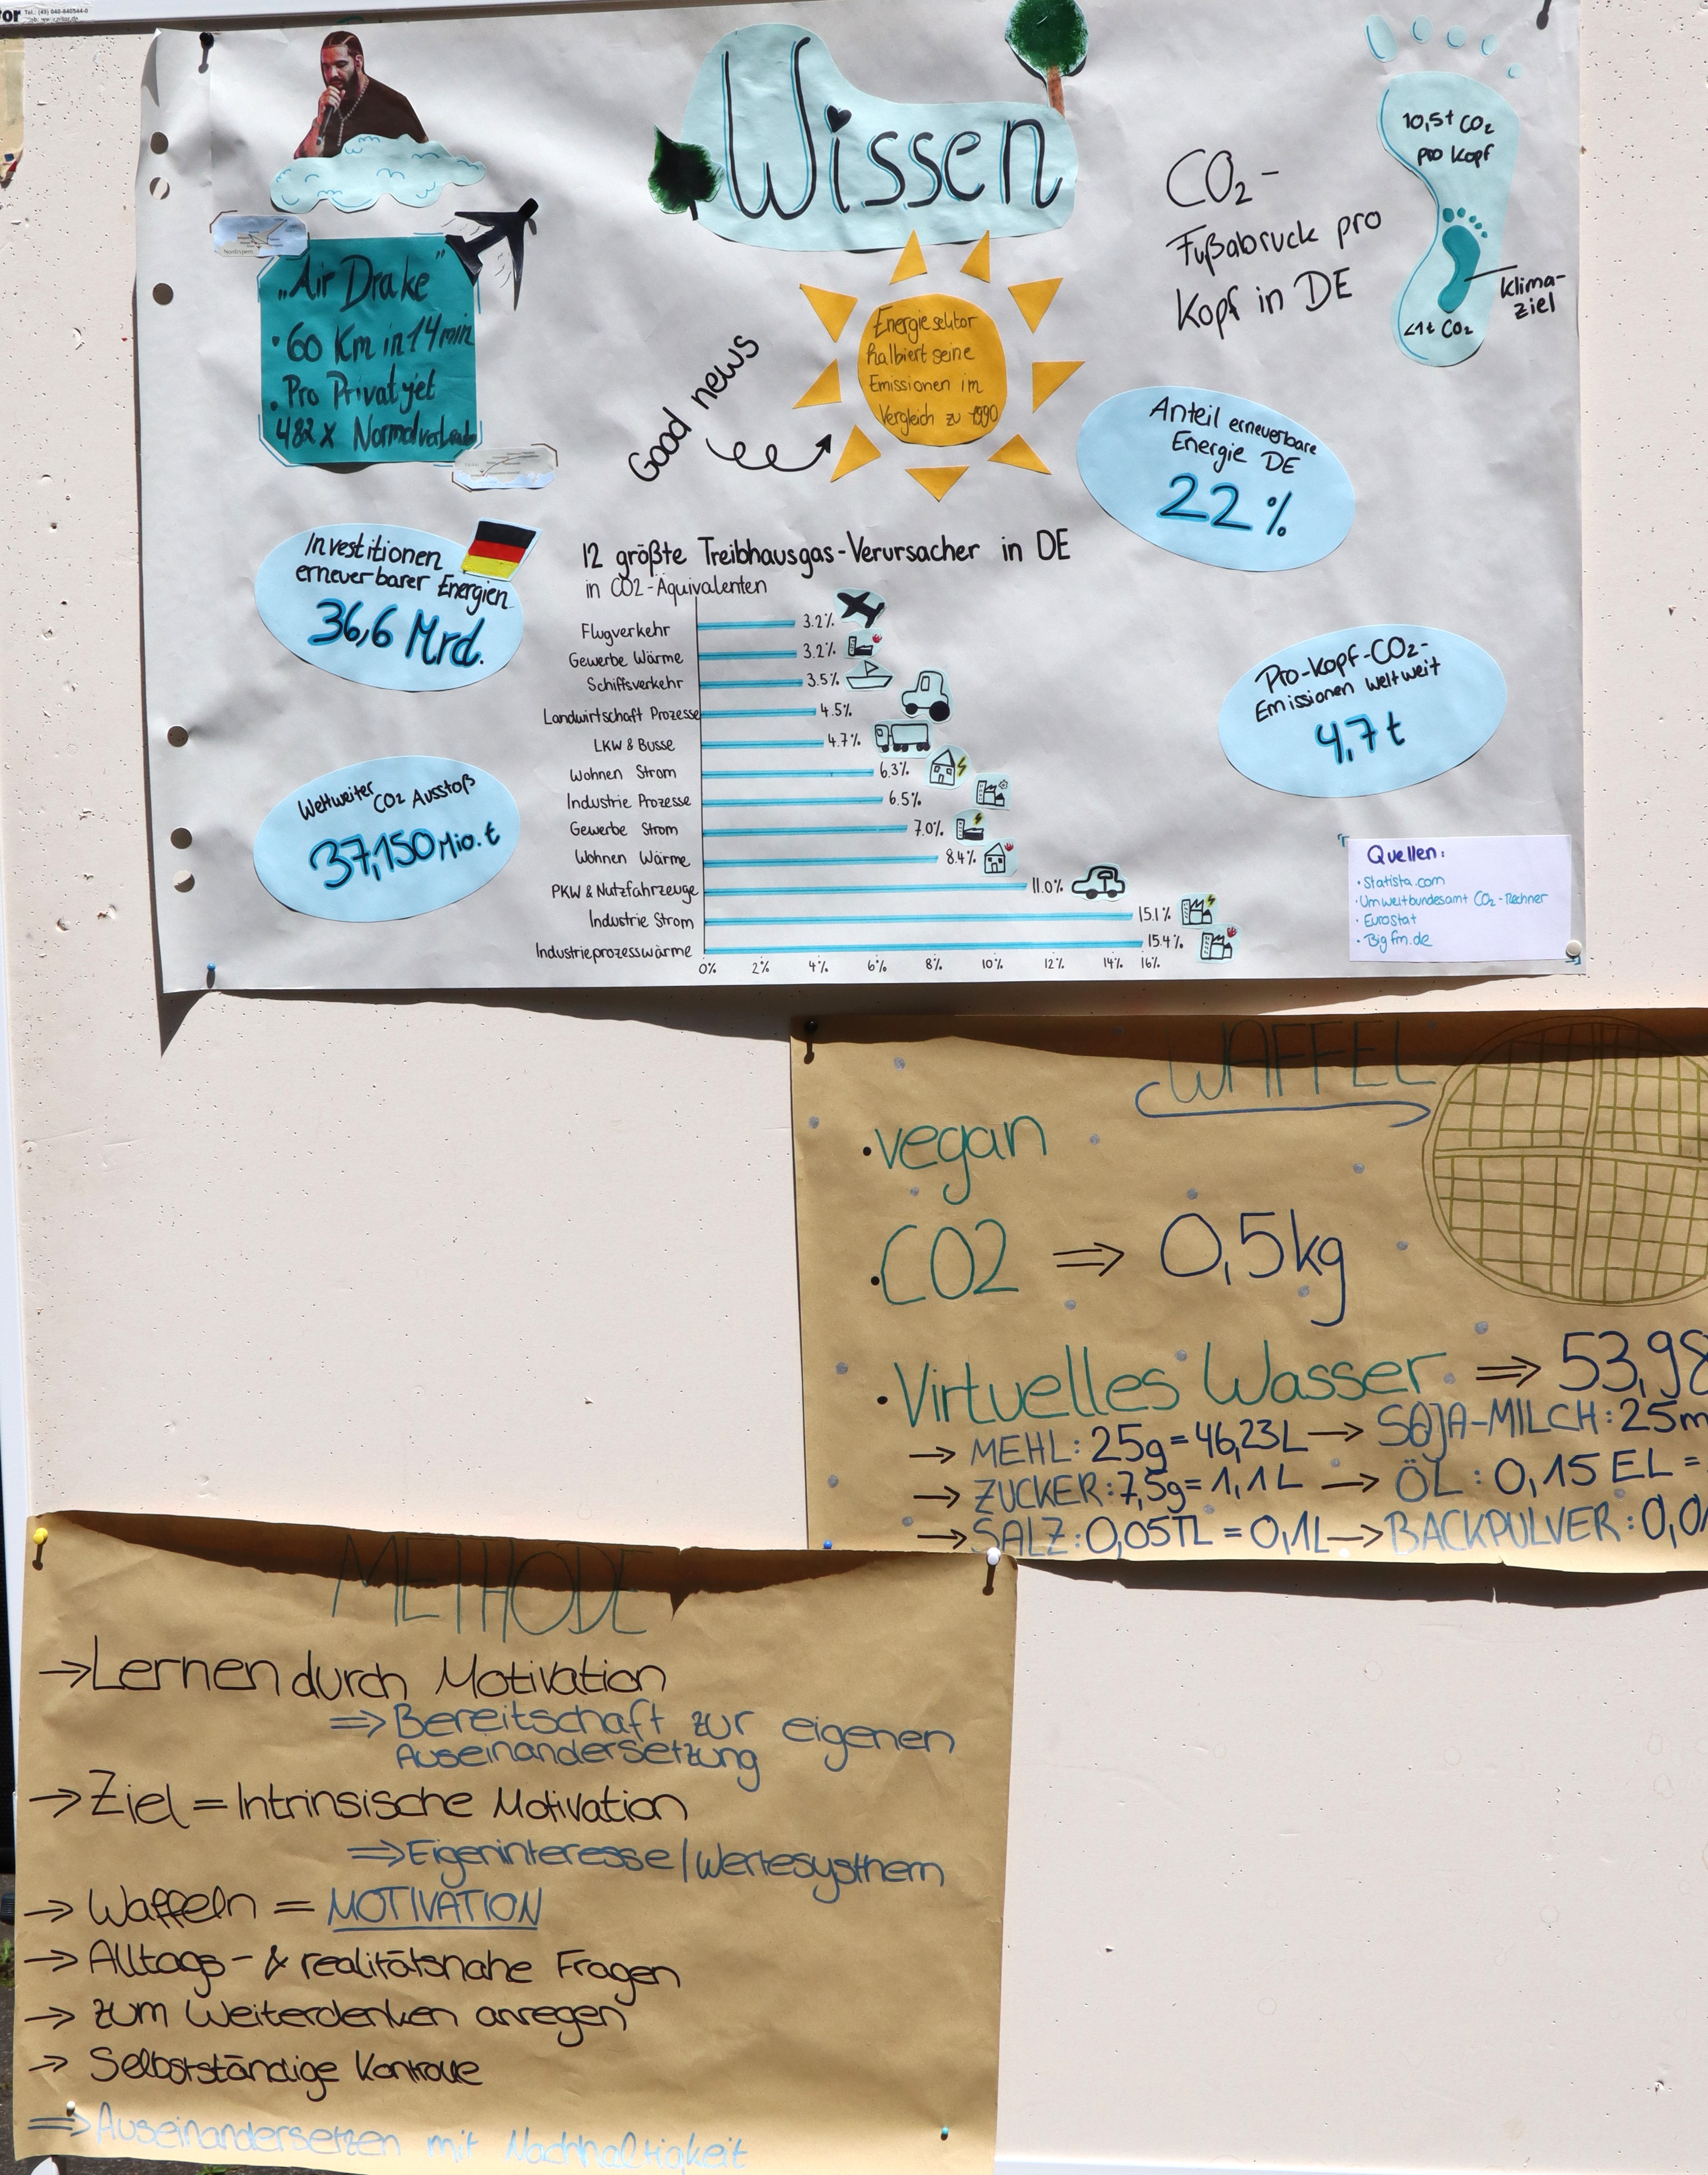 Wissen
"Air Drake"
· 60 Km in 14 min
· Pro Privatjet
482 x
CO2-
Fußabdruck pro
Kopf in DE
10,5t CO2
pro Kopf
Klima-
ziel
<1t CO2
Good news
Energiesektor
halbiert seine
Emissionen im
Vergleich zu 1990
Anteil erneuerbare
Energie DE
22%
Investitionen
erneuerbarer Energien
36,6 Mrd.
Weltweiter CO2 Ausstoß
37,150 Mio. t
Pro-Kopf-CO2-
Emissionen weltweit
4,7 t
12 größte Treibhausgas-Verursacher in DE
in CO2-Äquivalenten
Flugverkehr 3.2%
Gewerbe Wärme 3.2%
Schiffsverkehr 3.5%
Landwirtschaft Prozesse 4.5%
LKW & Busse 4.7%
Wohnen Strom 6.3%
Industrie Prozesse 6.5%
Gewerbe Strom 7.0%
Wohnen Wärme 8.4%
PKW & Nutzfahrzeuge 11.0%
Industrie Strom 15.1%
Industrieprozesswärme 15.4%
0% 2% 4% 6% 8% 10% 12% 14% 16%
Quellen:
· Statista.com
· Umweltbundesamt CO2-Rechner
· Eurostat
· Bigfm.de
WAFFEL
· vegan
· CO2 ⇒ 0,5kg
· Virtuelles Wasser ⇒ 53,98
→ MEHL: 25g = 46,23L → SOJA-MILCH: 25m
→ ZUCKER: 7,5g = 1,1L → ÖL: 0,15 EL =
→ SALZ: 0,05TL = 0,1L → BACKPULVER: 0,0
METHODE
→ Lernen durch Motivation
⇒ Bereitschaft zur eigenen
Auseinandersetzung
→ Ziel = Intrinsische Motivation
⇒ Eigeninteresse/Wertesysthem
→ Waffeln = MOTIVATION
→ Alltags- & realitätsnahe Fragen
→ zum Weiterdenken anregen
→ Selbstständige Kontrolle
⇒ Auseinandersetzen mit Nachhaltigkeit